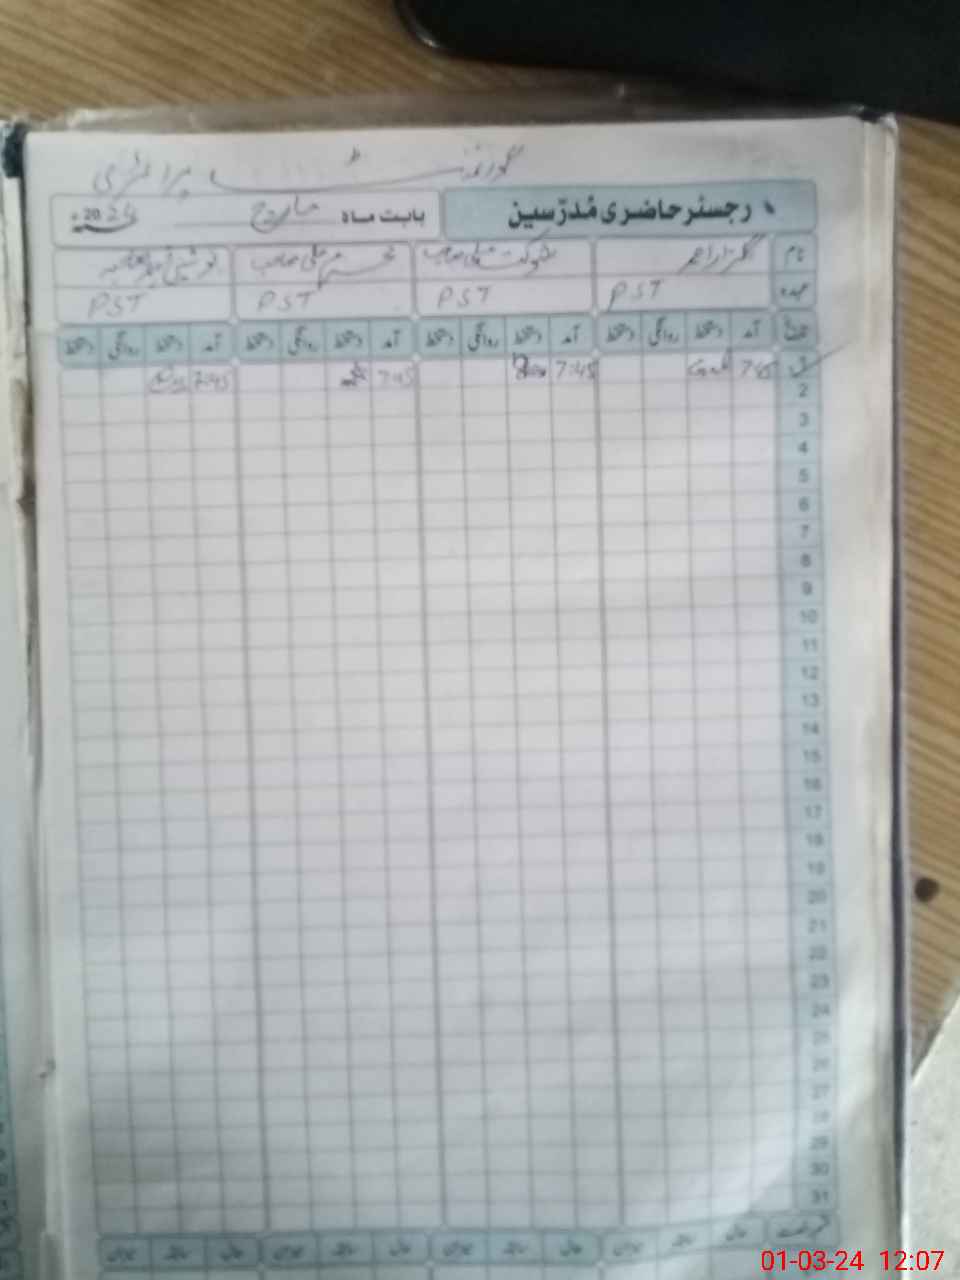 گورنمنٹ پرائمری
رجسٹر حاضری مُدرّسین بابت ماہ مارچ 2024ء
نام گلزار احمد شوکت علی صاحب محرم علی صاحب
عہدہ PST PST PST PST
تاریخ آمد دستخط روانگی دستخط آمد دستخط روانگی دستخط آمد دستخط روانگی دستخط آمد دستخط روانگی دستخط
1 7:45 7:45 7:45 7:45
2
3
4
5
6
7
8
9
10
11
12
13
14
15
16
17
18
19
20
21
22
23
24
25
26
27
28
29
30
31
01-03-24 12:07